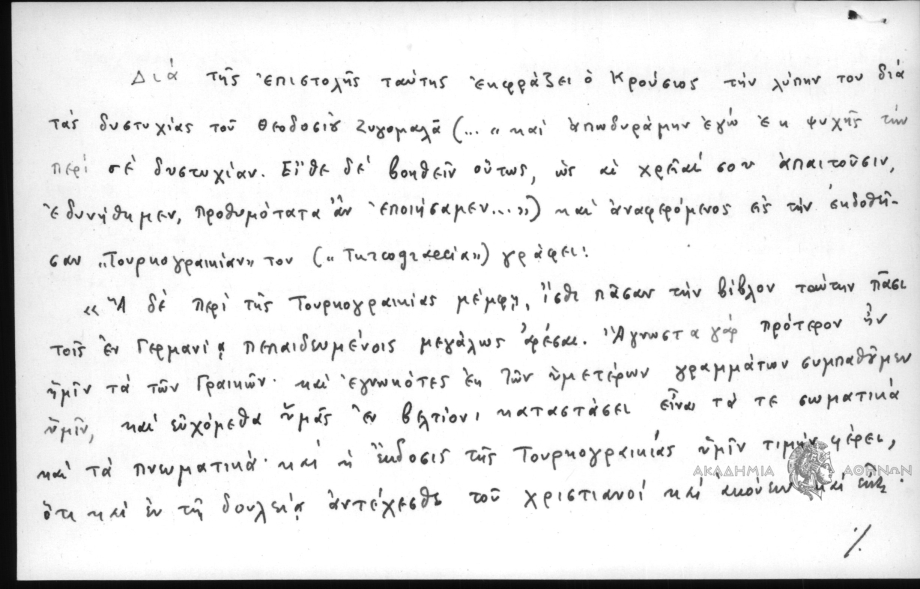 Διά τῆς ἐπιστολῆς ταύτης ἐκφράζει ὁ Κρούσιος τήν λύπην του διά
τάς δυστυχίας τοῦ Θεοδοσίου Ζυγομαλᾶ (... «καί ἀπωδυράμην ἐγώ ἐκ ψυχῆς τήν
περί σέ δυστυχίαν. Εἴθε δέ βοηθεῖν οὕτως, ὡς αἱ χρεῖαί σου ἀπαιτοῦσιν,
ἐδυνήθημεν, προθυμότατα ἄν ἐποιήσαμεν...») καί ἀναφερόμενος εἰς τήν ἐκδοθεῖ-
σαν „Τουρκογραικίαν" του („Turcograecia") γράφει:
« Ἅ δέ περί τῆς Τουρκογραικίας μέμφῃ, ἴσθι πᾶσαν τήν βίβλον ταύτην πᾶσι
τοῖς ἐν Γερμανίᾳ πεπαιδευμένοις μεγάλως ἀρέσαι. Ἄγνωστα γάρ πρότερον ἦν
ἡμῖν τά τῶν Γραικῶν· καί ἐγνωκότες ἐκ τῶν ὑμετέρων γραμμάτων συμπαθοῦμεν
ὑμῖν, καί εὐχόμεθα ὑμᾶς ἐν βελτίονι καταστάσει εἶναι τά τε σωματικά
καί τά πνευματικά· καί ἡ ἔκδοσις τῆς Τουρκογραικίας ὑμῖν τιμήν φέρει,
ὅτι καί ἐν τῇ δουλείᾳ ἀντέχεσθε τοῦ χριστιανοί καί ἀκούειν καί εἶναι·
ΑΚΑΔΗΜΙΑ ΑΘΗΝΩΝ
./.